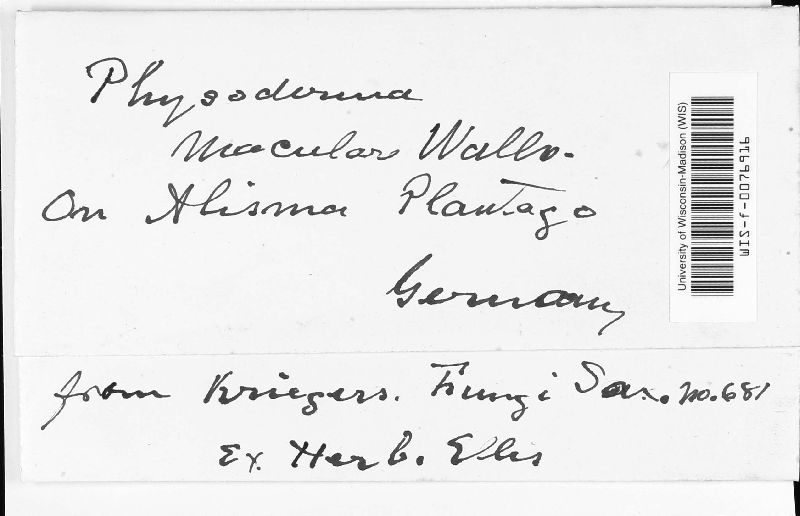 Physoderma
maculare Wallr.
On Alisma Plantago
Germany
from Kriegers. Fungi Sax. no. 681
Ex. Herb. Ellis
University of Wisconsin-Madison (WIS)
WIS-f-0076916